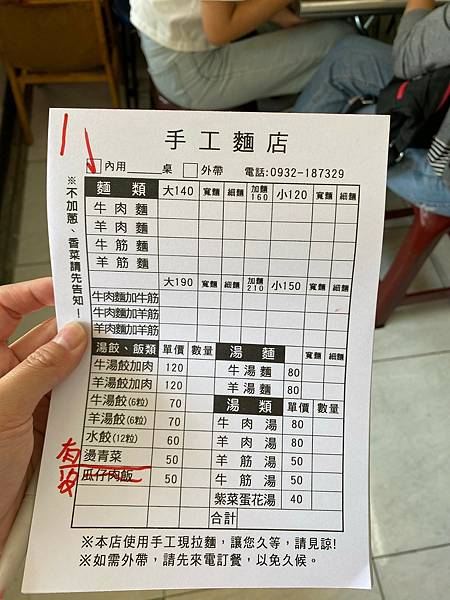 手工麵店
11
內用 桌 外帶 電話:0932-187329
※不加蔥、香菜請先告知！
麵類 大140 寬麵 細麵 加麵160 小120 寬麵 細麵
牛肉麵
羊肉麵
牛筋麵
羊筋麵
大190 寬麵 細麵 加麵210 小150 寬麵 細麵
牛肉麵加牛筋
牛肉麵加羊筋
羊肉麵加羊筋
湯餃、飯類 單價 數量
牛湯餃加肉 120
羊湯餃加肉 120
牛湯餃(6粒) 70
羊湯餃(6粒) 70
水餃(12粒) 60
燙青菜 50
瓜仔肉飯 50
湯麵 寬麵 細麵
牛湯麵 80
羊湯麵 80
湯類 單價 數量
牛肉湯 80
羊肉湯 80
羊筋湯 50
牛筋湯 50
紫菜蛋花湯 40
合計
※本店使用手工現拉麵，讓您久等，請見諒!
※如需外帶，請先來電訂餐，以免久候。